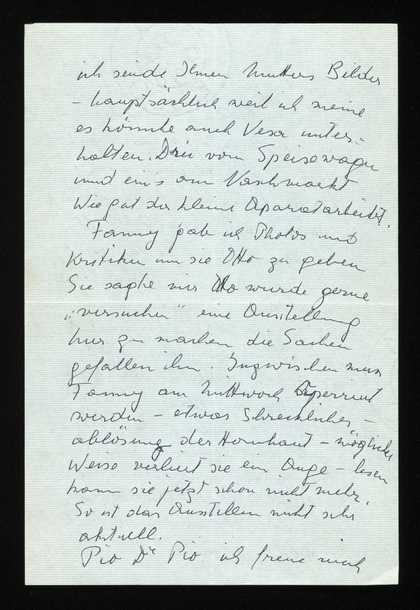 ich sende Ihnen Mutters Bilder
– hauptsächlich weil ich meine
es könnte auch Vesa unter-
halten. Drei vom Speisewagen
und eins am Naschmarkt
Wie gut der kleine Aparat arbeitet.
Fanny gab ich Photos und
Kritiken um sie Otto zu geben
Sie sagte mir Otto würde gerne
„versuchen" eine Ausstellung
hier zu machen die Sachen
gefallen ihm. Inzwischen muss
Fanny am Mittwoch operiert
werden – etwas Schreckliches –
ablösung der Hornhaut – möglicher
Weise verliert sie ein Auge – lesen
kann sie jetzt schon nicht mehr.
So ist das Ausstellen nicht sehr
aktuell.
ich freue mich